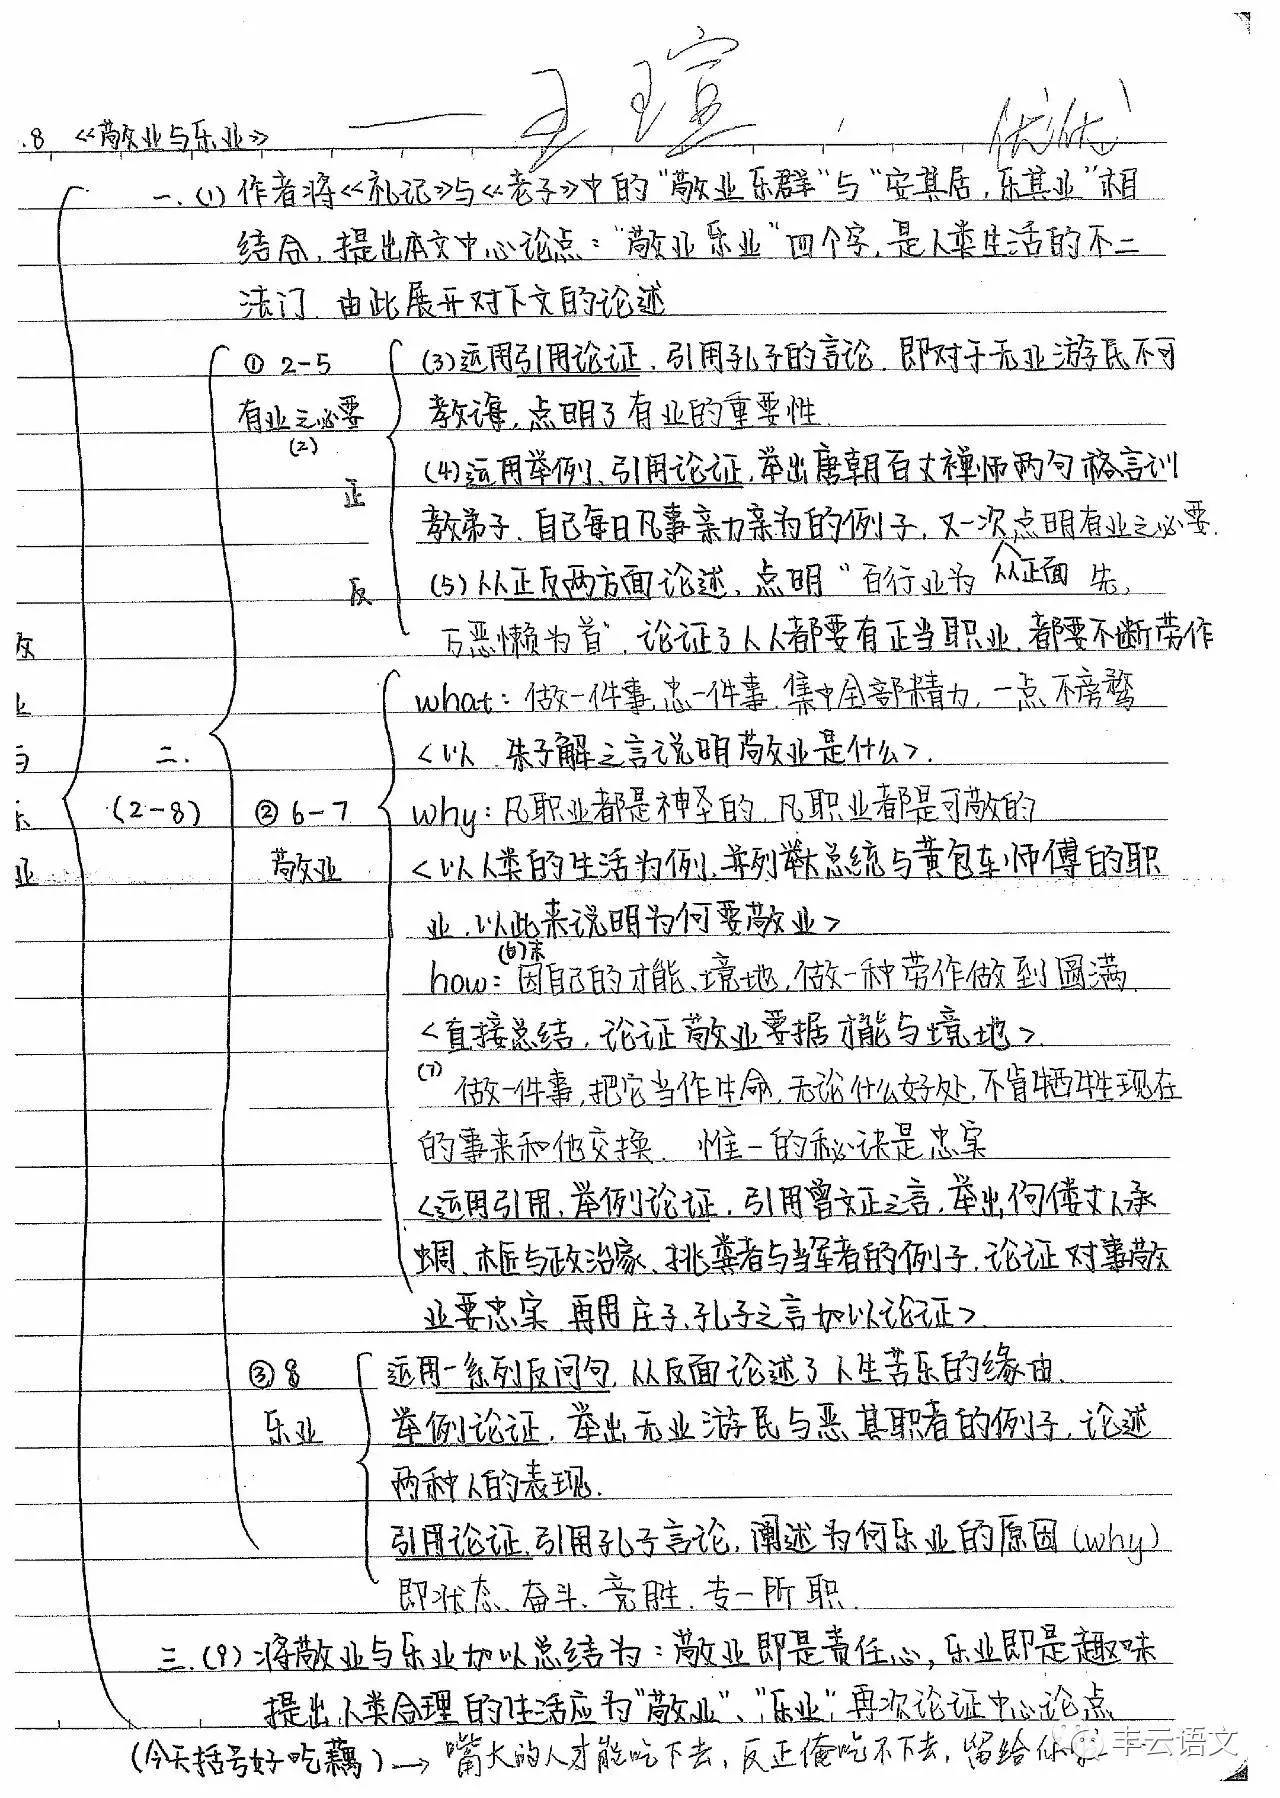 ——王瑄
优优
.8 《敬业与乐业》
一.(1) 作者将《礼记》与《老子》中的"敬业乐群"与"安其居,乐其业"相
结合,提出本文中心论点:"敬业乐业"四个字,是人类生活的不二
法门.由此展开对下文的论述
敬业与乐业
二.
(2-8)
① 2-5
有业之必要
(2)
正
反
(3)运用引用论证,引用孔子的言论.即对于无业游民不可
教诲,点明了有业的重要性.
(4)运用举例、引用论证,举出唐朝百丈禅师两句格言训
教弟子.自己每日凡事亲力亲为的例子,又一次点明有业之必要.
(5)从正反两方面论述,点明"百行业为 从正面 先,
万恶懒为首",论证了人人都要有正当职业,都要不断劳作
② 6-7
敬业
what: 做一件事,忠一件事.集中全部精力,一点不旁骛
<以 朱子解之言说明敬业是什么>.
why: 凡职业都是神圣的,凡职业都是可敬的
<以人类的生活为例,并列举大总统与黄包车师傅的职
业,以此来说明为何要敬业>
(6)末
how: 因自己的才能、境地,做一种劳作做到圆满.
<直接总结,论证敬业要据才能与境地>
(7) 做一件事,把它当作生命,无论什么好处,不肯牺牲现在
的事来和他交换. 惟一的秘诀是忠实
<运用引用、举例论证,引用曾文正之言,举出佝偻丈人承
蜩、木匠与政治家、挑粪者与当军者的例子,论证对事敬
业要忠实.再用庄子、孔子之言加以论证>.
③ 8
乐业
运用一系列反问句,从反面论述了人生苦乐的缘由.
举例论证,举出无业游民与恶其职者的例子,论述
两种人的表现.
引用论证,引用孔子言论,阐述为何乐业的原因(why)
即状态、奋斗、竞胜、专一所职.
三.(9) 将敬业与乐业加以总结为:敬业即是责任心,乐业即是趣味
提出人类合理的生活应为"敬业"、"乐业",再次论证中心论点
(今天括号好吃藕)→ 嘴大的人才能吃下去,反正俺吃不下去,留给你
丰云语文